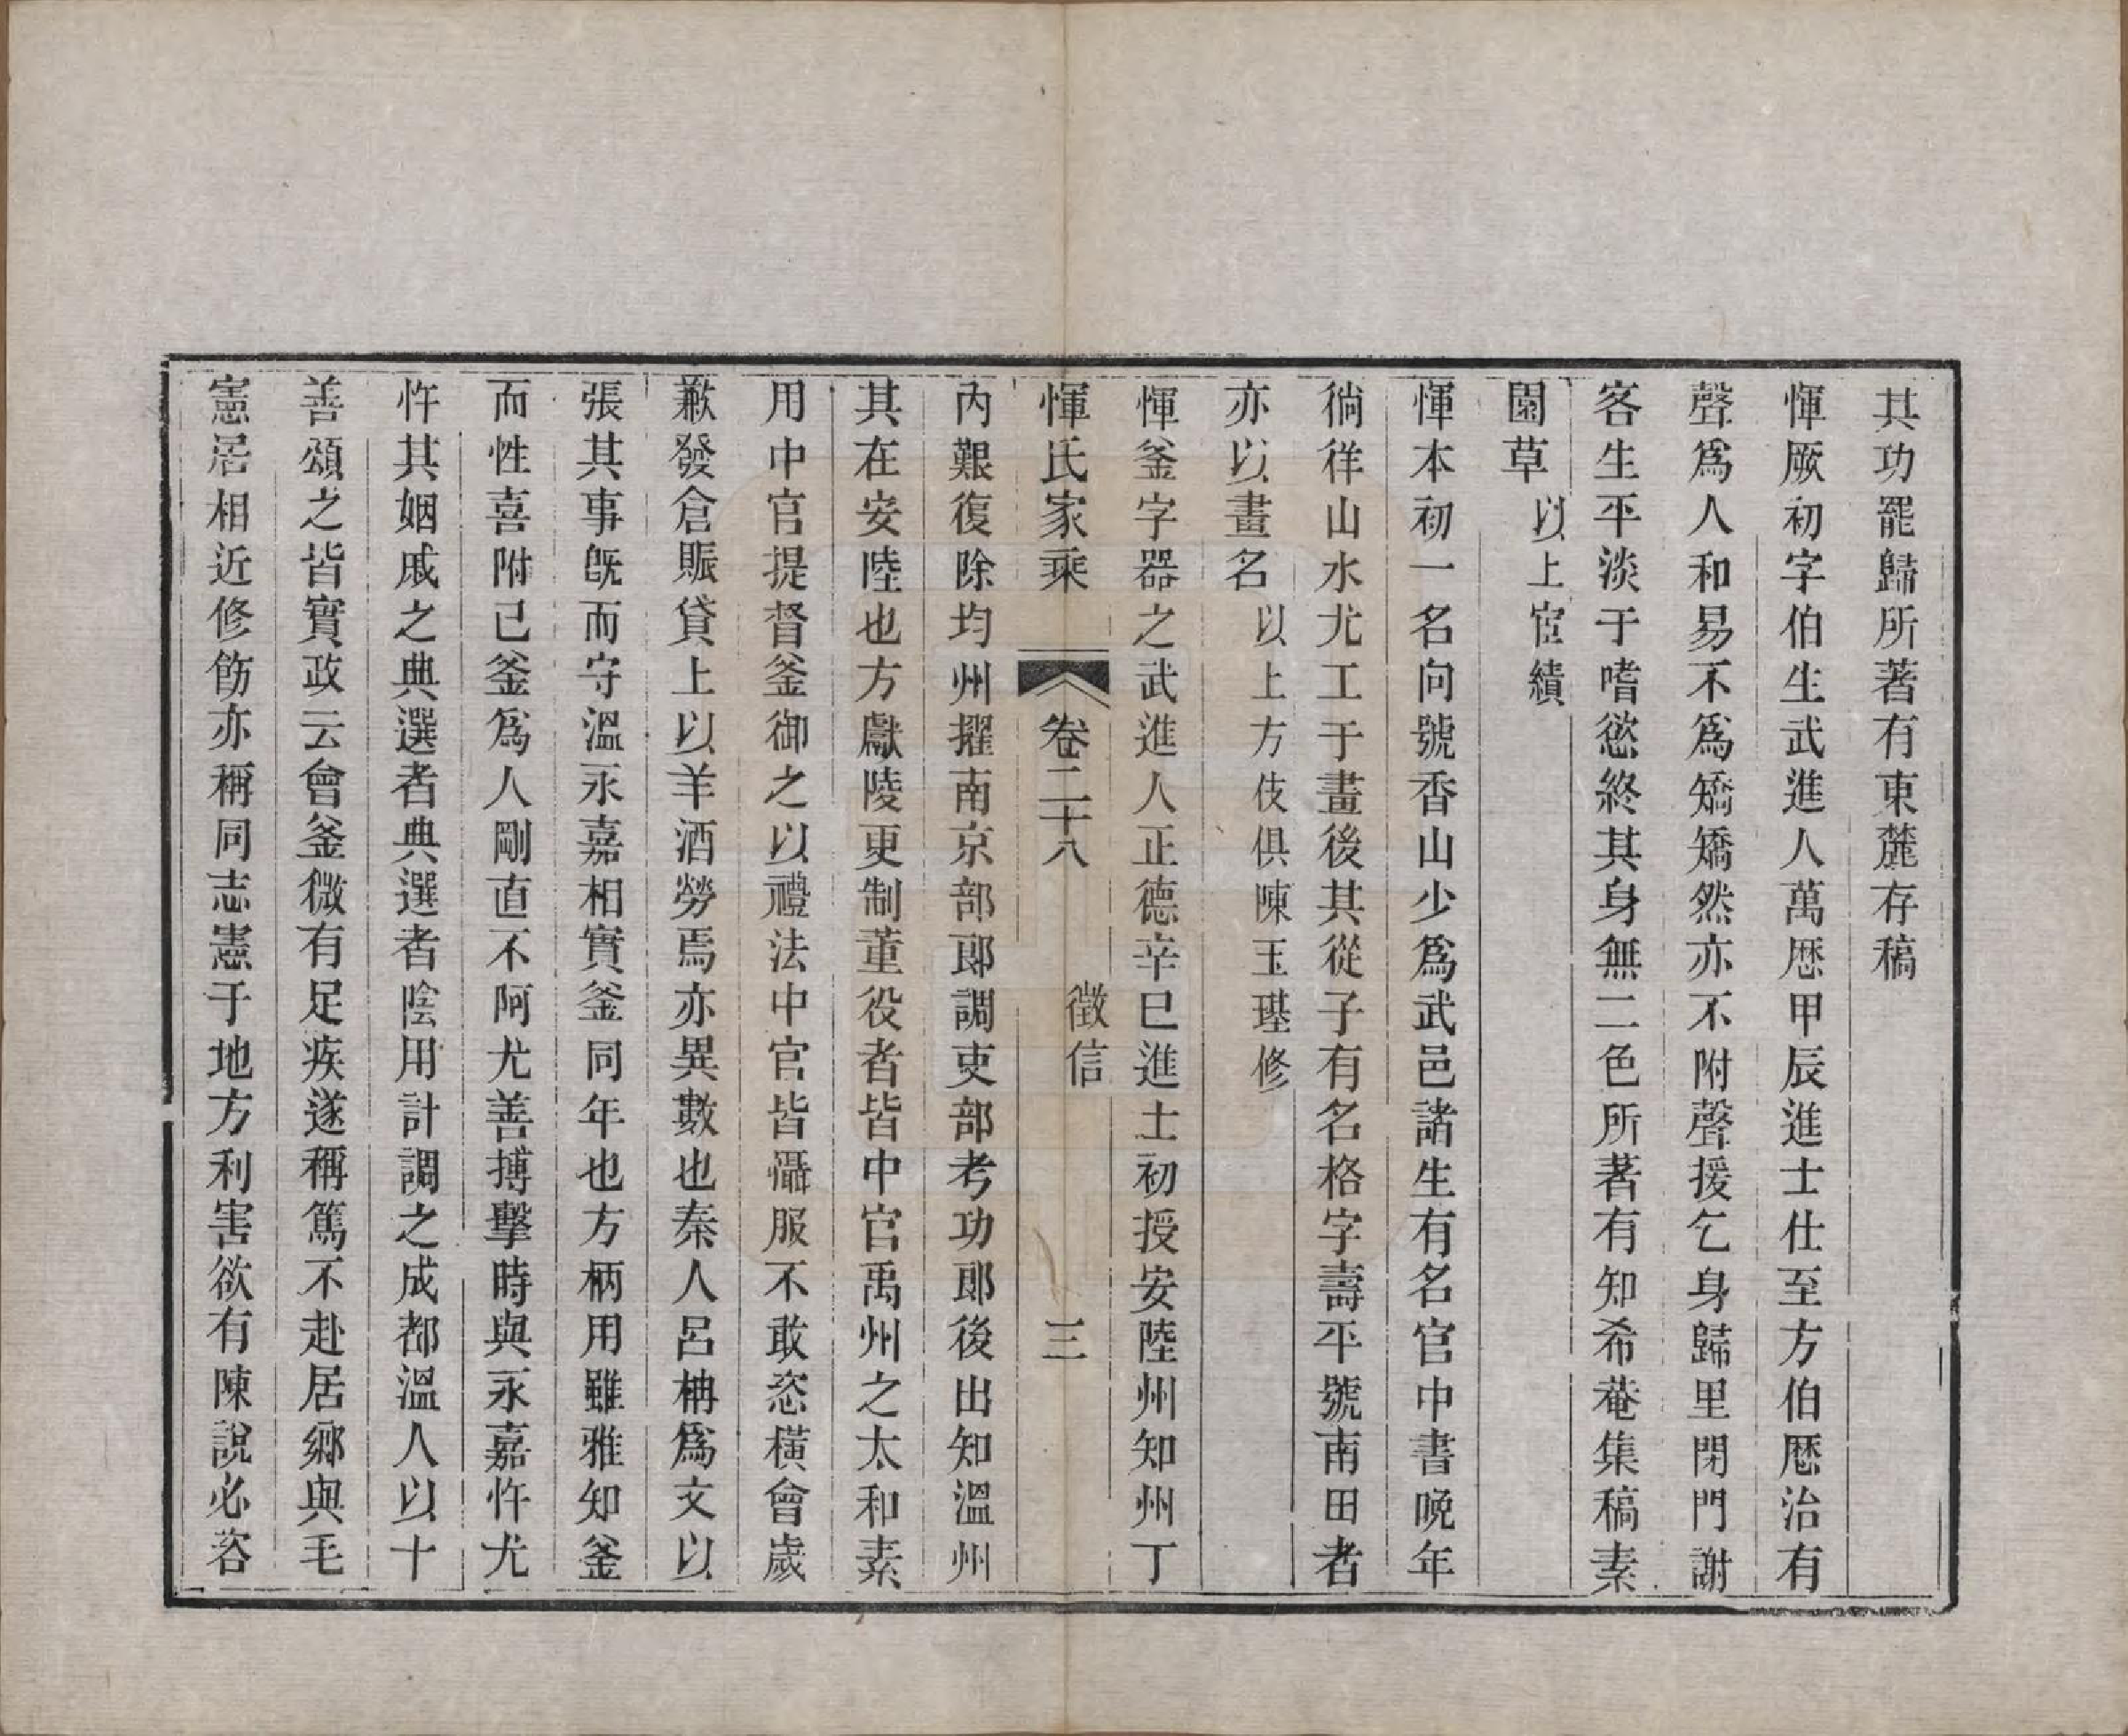 其功罷歸所著有東麓存稿
惲厥初字伯生武進人萬厯甲辰進士仕至方伯厯治有
聲爲人和易不爲矯矯然亦不附聲援乞身歸里閉門謝
客生平淡于嗜慾終其身無二色所著有知希菴集稿素
園草以上宦績
惲本初一名向號香山少爲武邑諸生有名官中書晚年
徜徉山水尤工于畫後其從子有名格字壽平號南田者
亦以畫名以上方伎俱陳玉璂修
惲釜字器之武進人正德辛巳進士初授安陸州知州丁
惲氏家乘 卷二十八 徵信 三
內艱復除均州擢南京部郎調吏部考功郎後出知溫州
其在安陸也方獻陵更制董役者皆中官禹州之太和素
用中官提督釜御之以禮法中官皆懾服不敢恣橫會歲
歉發倉賑貸上以羊酒勞焉亦異數也秦人呂柟爲文以
張其事旣而守溫永嘉相實釜同年也方柄用雖雅知釜
而性喜附己釜爲人剛直不阿尤善搏擊時與永嘉忤尤
忤其姻戚之典選者典選者陰用計調之成都溫人以十
善頌之皆實政云會釜微有足疾遂稱篤不赴居鄉與毛
憲居相近修飭亦稱同志憲于地方利害欲有陳說必咨